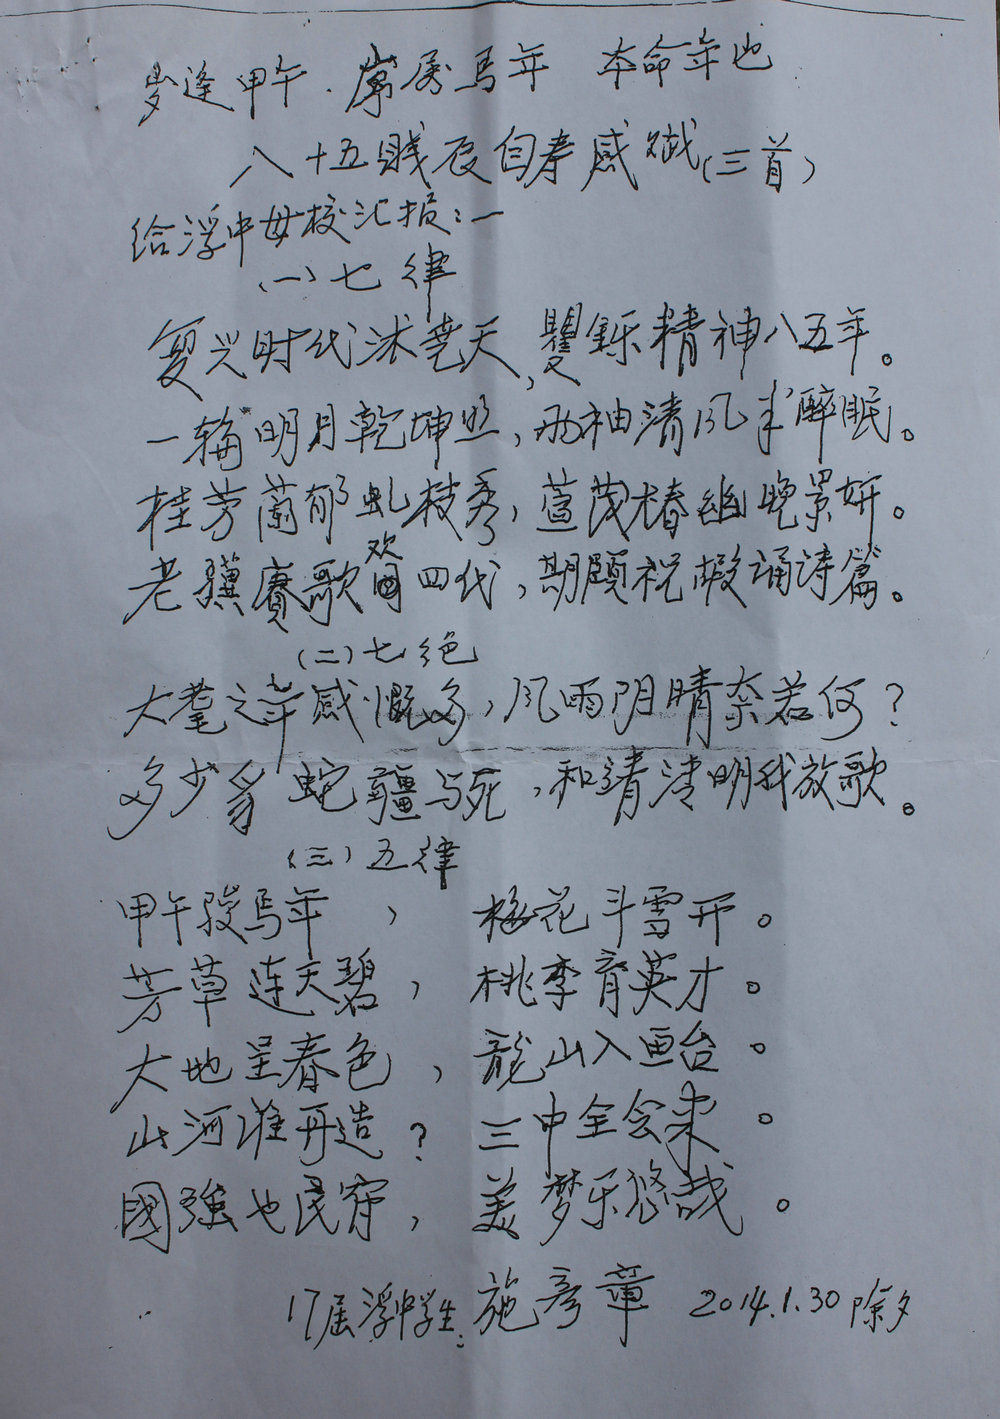 岁逢甲午.肖属马年 本命年也
八十五贱辰自寿感赋(三首)
给浮中母校汇报:一
(一)七律
复兴时代沐尧天,矍铄精神八五年。
一轮明月乾坤照,两袖清风半醉眠。
桂芳蘭郁虬枝秀,萱茂椿幽晚景妍。
老骥賡歌欢四代,期頤祝嘏诵诗篇。
(二)七绝
大耋之年感慨多,风雨阴晴奈若何?
多少豸蛇疆与死,和靖清明我放歌。
(三)五律
甲午骏馬年,梅花斗雪开。
芳草连天碧,桃李育英才。
大地呈春色,龍山入画台。
山河谁再造?三中全会来。
國強也民富,美梦乐悠哉。
17届浮中学生:施彦章 2014.1.30除夕